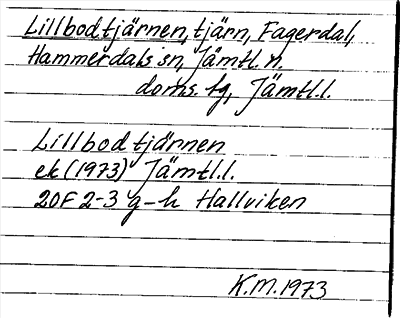 Lillbodtjärnen, tjärn, Fagerdal,
Hammerdals sn, Jämtl. n.
doms. fg, Jämtl.l.
Lillbodtjärnen
ek (1973) Jämtl.l.
20F 2-3 g-h Hallviken
K.M. 1973